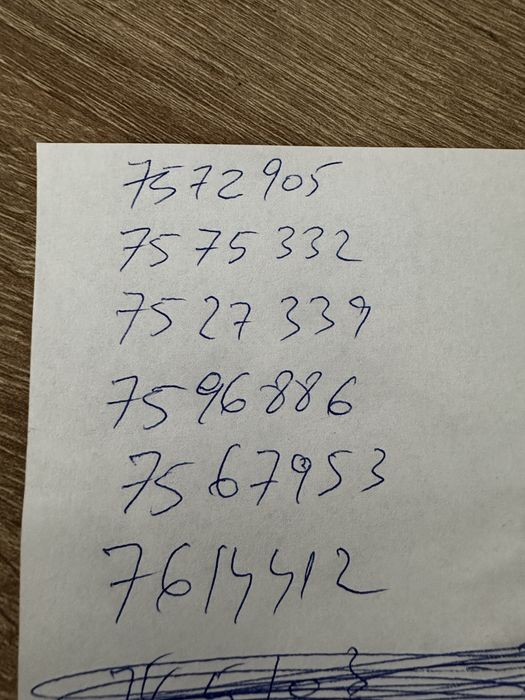 7572905
7575332
7527339
7596886
7567953
7614412